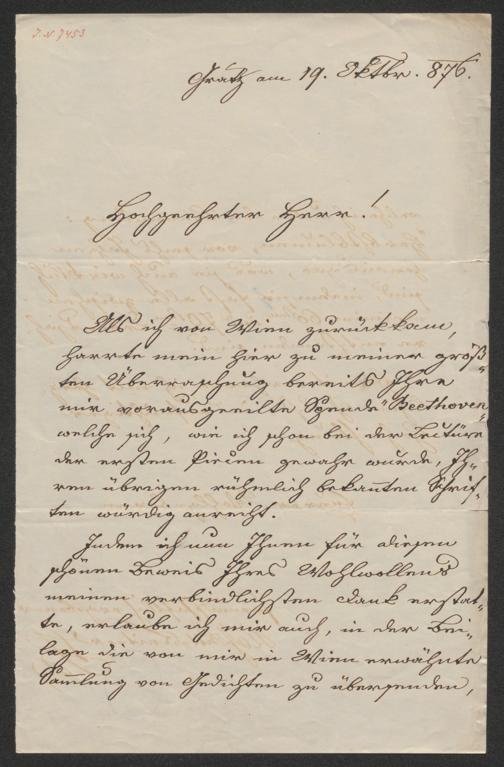 J.N 7453
Gratz am 19. Oktbr. 876.
Hochgeehrter Herr!
Als ich von Wien zurückkam,
harrte mein hier zu meiner größ-
ten Überraschung bereits Ihre
mir vorausgeeilte Spende "Beethoven",
welche sich, wie ich schon bei der Lectüre
der ersten Piecen gewahr wurde, Ih-
ren übrigen rühmlich bekannten Schrif-
ten würdig anreiht.
Indem ich nun Ihnen für diesen
schönen Beweis Ihres Wohlwollens
meinen verbindlichsten Dank erstat-
te, erlaube ich mir auch, in der Bei-
lage die von mir in Wien erwähnte
Sammlung von Gedichten zu übersenden,